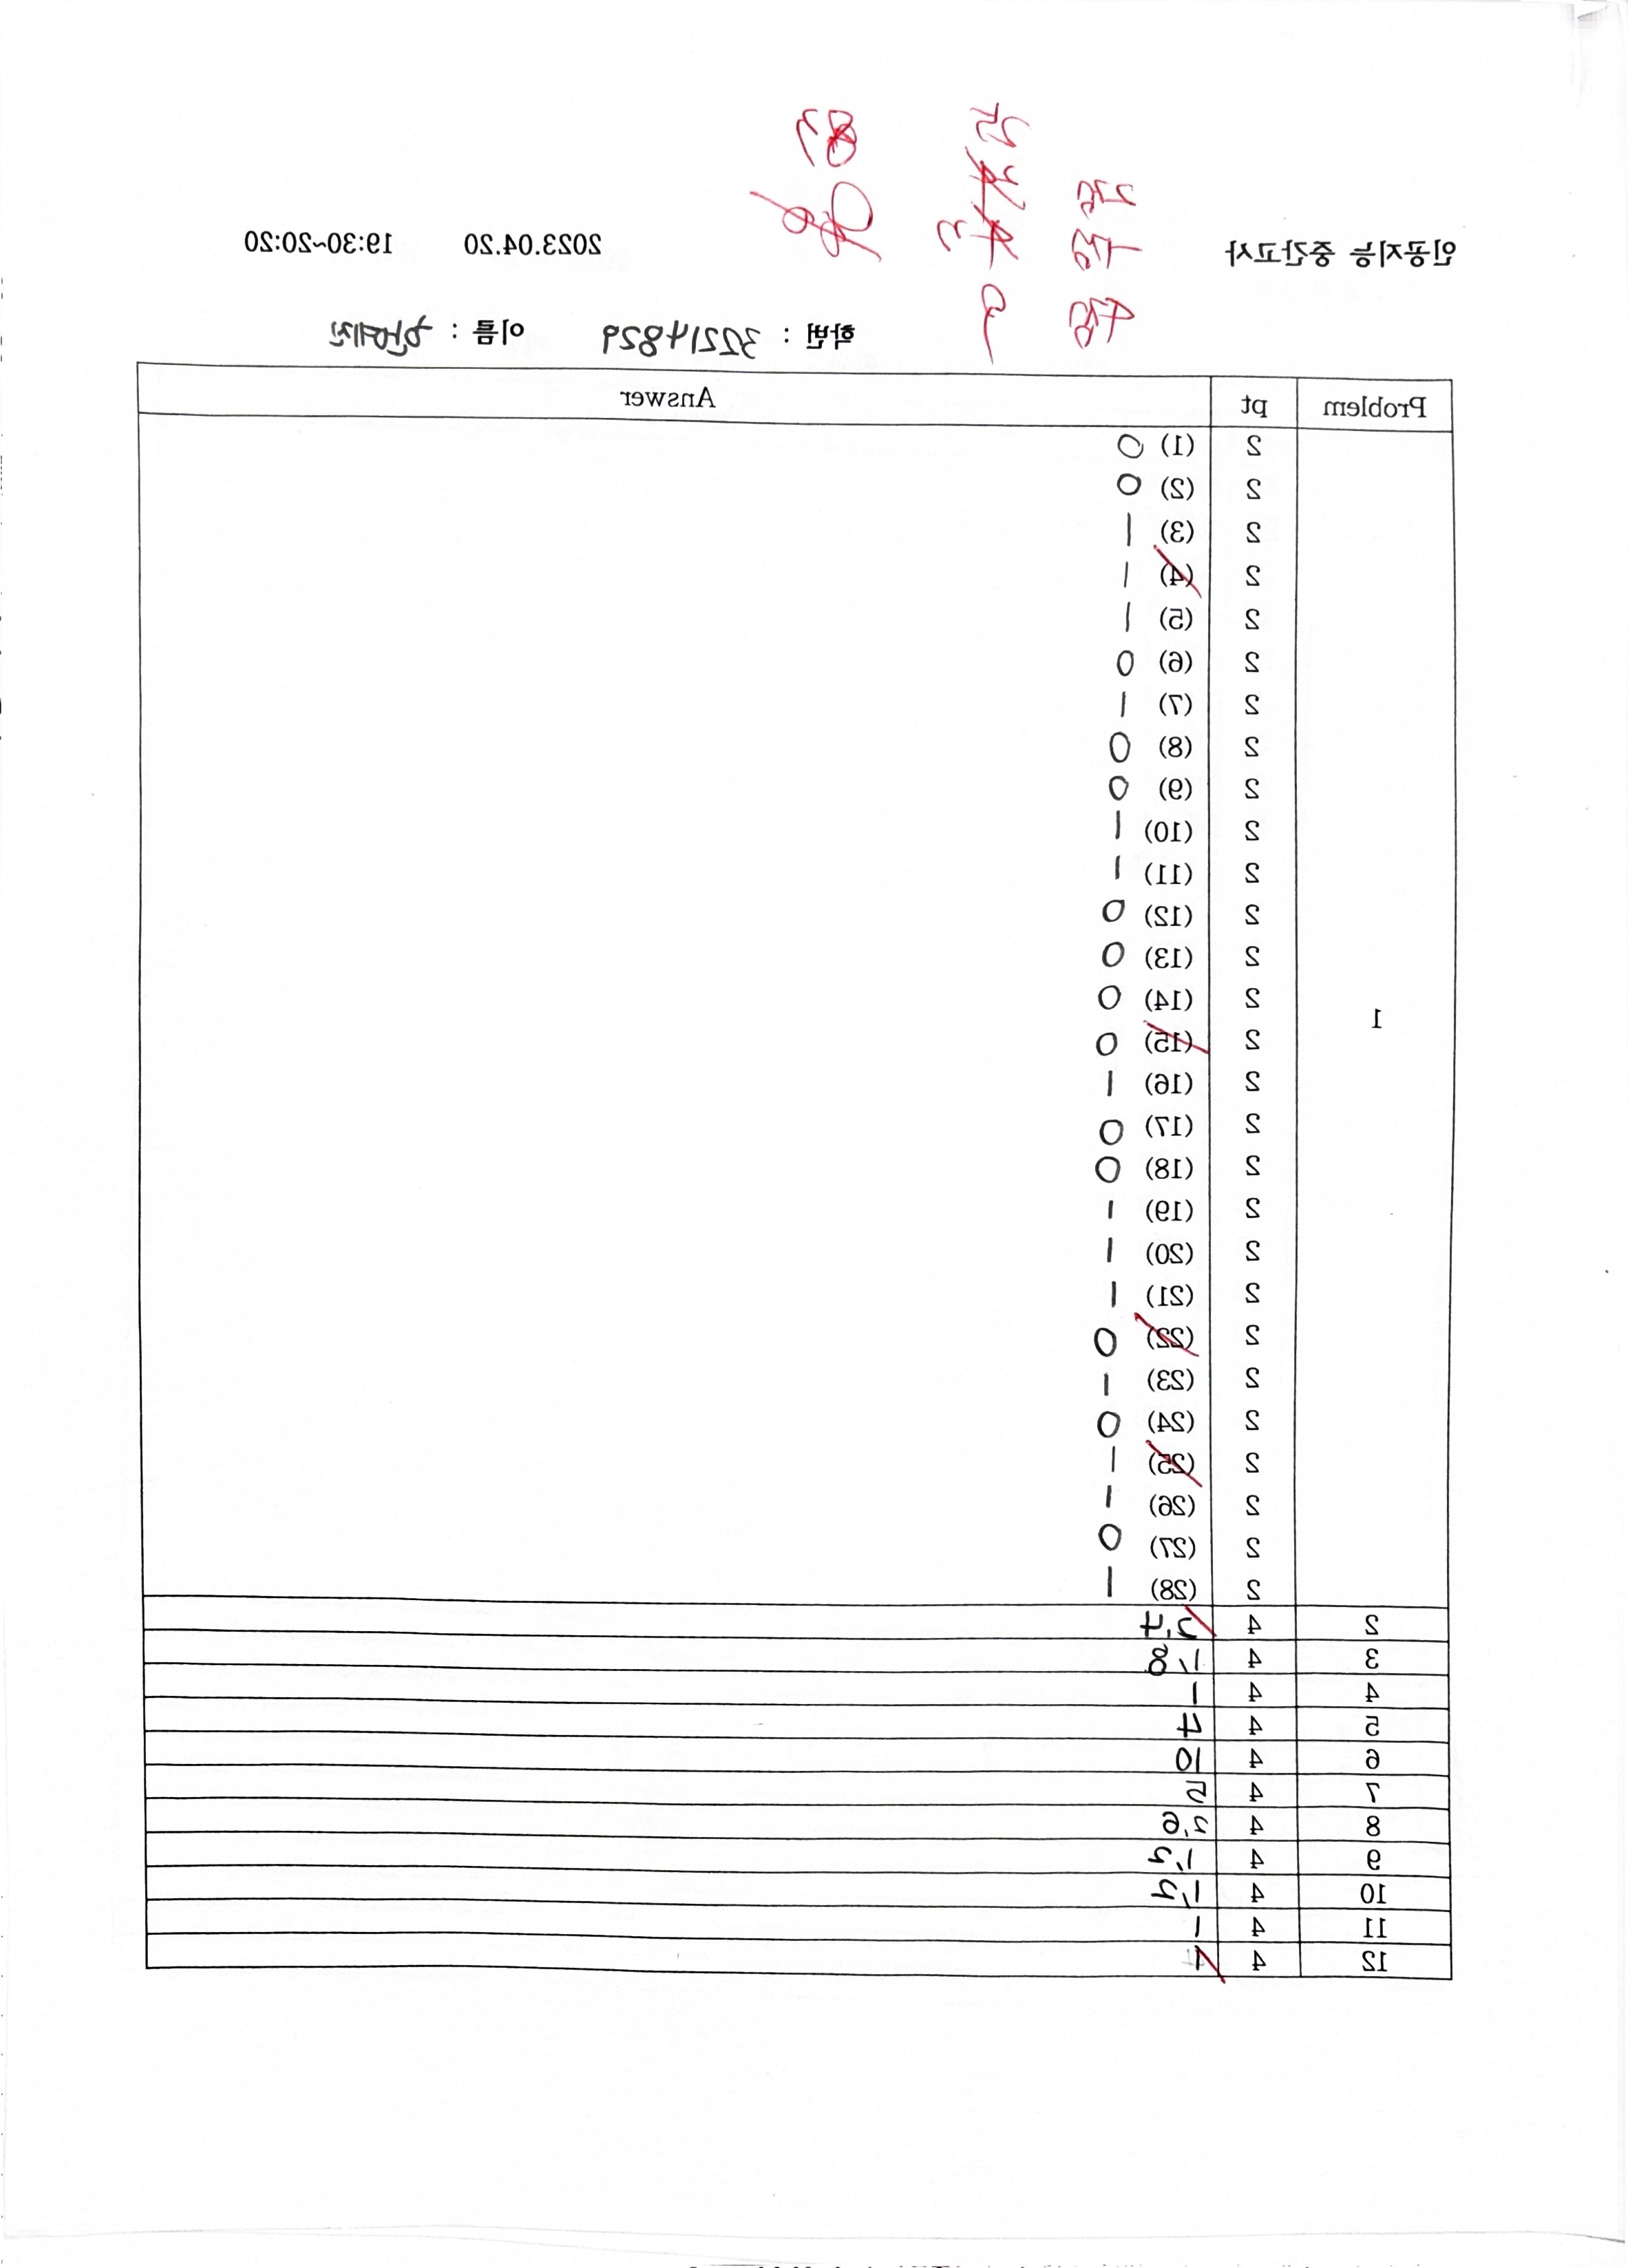 인공지능 중간고사 2023.04.20 19:30~20:20
2점
4점
83
학번 : 32214829 이름 : 한예진
Problem pt Answer
1
2 (1) 0
2 (2) 0
2 (3) 1
2 (4) 1
2 (5) 1
2 (6) 0
2 (7) 1
2 (8) 0
2 (9) 0
2 (10) 1
2 (11) 1
2 (12) 0
2 (13) 0
2 (14) 0
2 (15) 0
2 (16) 1
2 (17) 0
2 (18) 0
2 (19) 1
2 (20) 1
2 (21) 1
2 (22) 0
2 (23) 1
2 (24) 0
2 (25) 1
2 (26) 1
2 (27) 0
2 (28) 1
2 4 7
3 4 1, 8
4 4 1
5 4 7
6 4 10
7 4 5
8 4 6
9 4 1
10 4 1, 4
11 4 1
12 4 4